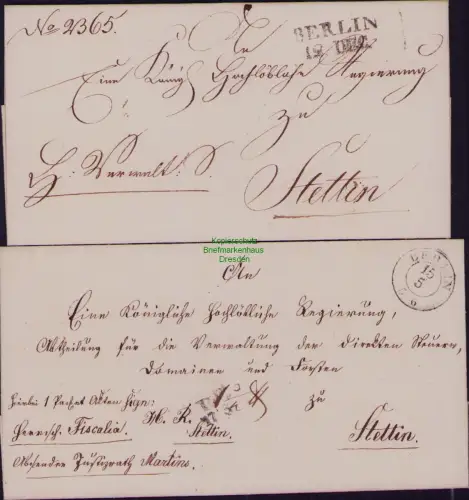 No 2365.
BERLIN
12 DEC.
An
Eine König Hochlöbliche Regierung
zu
H: Verwalt: S.
Stettin
Kopierschutz
Briefmarkenhaus
Dresden
An
BERLIN
15
5
Eine Königliche Hochlöbliche Regierung,
Abtheilung für die Verwaltung der direkten Steuern,
Domainen und Forsten
Hierbei 1 Packet Akten sign:
zu
Herrsch. Fiscalia.
H. R.
Stettin.
Stettin.
Absender Justizrath Martins.